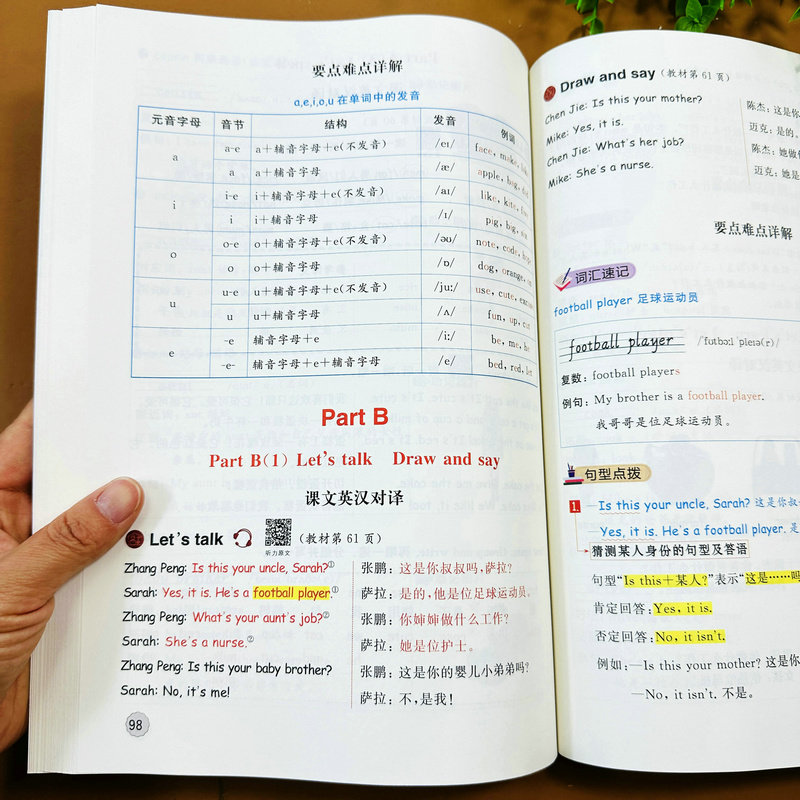 要点难点详解
a,e,i,o,u 在单词中的发音
元音字母 音节 结构 发音 例词
a a-e a+辅音字母+e(不发音) /eɪ/ face, make,
a a+辅音字母 /æ/ apple, bag,
i i-e i+辅音字母+e(不发音) /aɪ/ like, kite,
i i+辅音字母 /ɪ/ pig, big,
o o-e o+辅音字母+e(不发音) /əʊ/ note, code,
o o+辅音字母 /ɒ/ dog, orange,
u u-e u+辅音字母+e(不发音) /juː/ use, cute,
u u+辅音字母 /ʌ/ fun, up,
e -e 辅音字母+e /iː/ be, me,
-e- 辅音字母+e+辅音字母 /e/ bed, red,
Part B
Part B(1) Let's talk Draw and say
课文英汉对译
Let's talk 听力原文 (教材第 61 页)
Zhang Peng: Is this your uncle, Sarah?① 张鹏:这是你叔叔吗,萨拉?
Sarah: Yes, it is. He's a football player.① 萨拉:是的,他是位足球运动员。
Zhang Peng: What's your aunt's job?② 张鹏:你婶婶做什么工作?
Sarah: She's a nurse.② 萨拉:她是位护士。
Zhang Peng: Is this your baby brother? 张鹏:这是你的婴儿小弟弟吗?
Sarah: No, it's me! 萨拉:不,是我!
98
Draw and say (教材第 61 页)
Chen Jie: Is this your mother? 陈杰:这是你
Mike: Yes, it is. 迈克:是的。
Chen Jie: What's her job? 陈杰:她做
Mike: She's a nurse. 迈克:她是
要点难点详解
词汇速记
football player 足球运动员
football player /ˈfʊtbɔːl ˈpleɪə(r)/
复数:football players
例句:My brother is a football player.
我哥哥是位足球运动员。
句型点拨
1. —Is this your uncle, Sarah? 这是你叔
—Yes, it is. He's a football player. 是
猜测某人身份的句型及答语
句型“Is this+某人?”表示“这是……吗
肯定回答:Yes, it is.
否定回答:No, it isn't.
例如:—Is this your mother? 这是你
—No, it isn't. 不是。